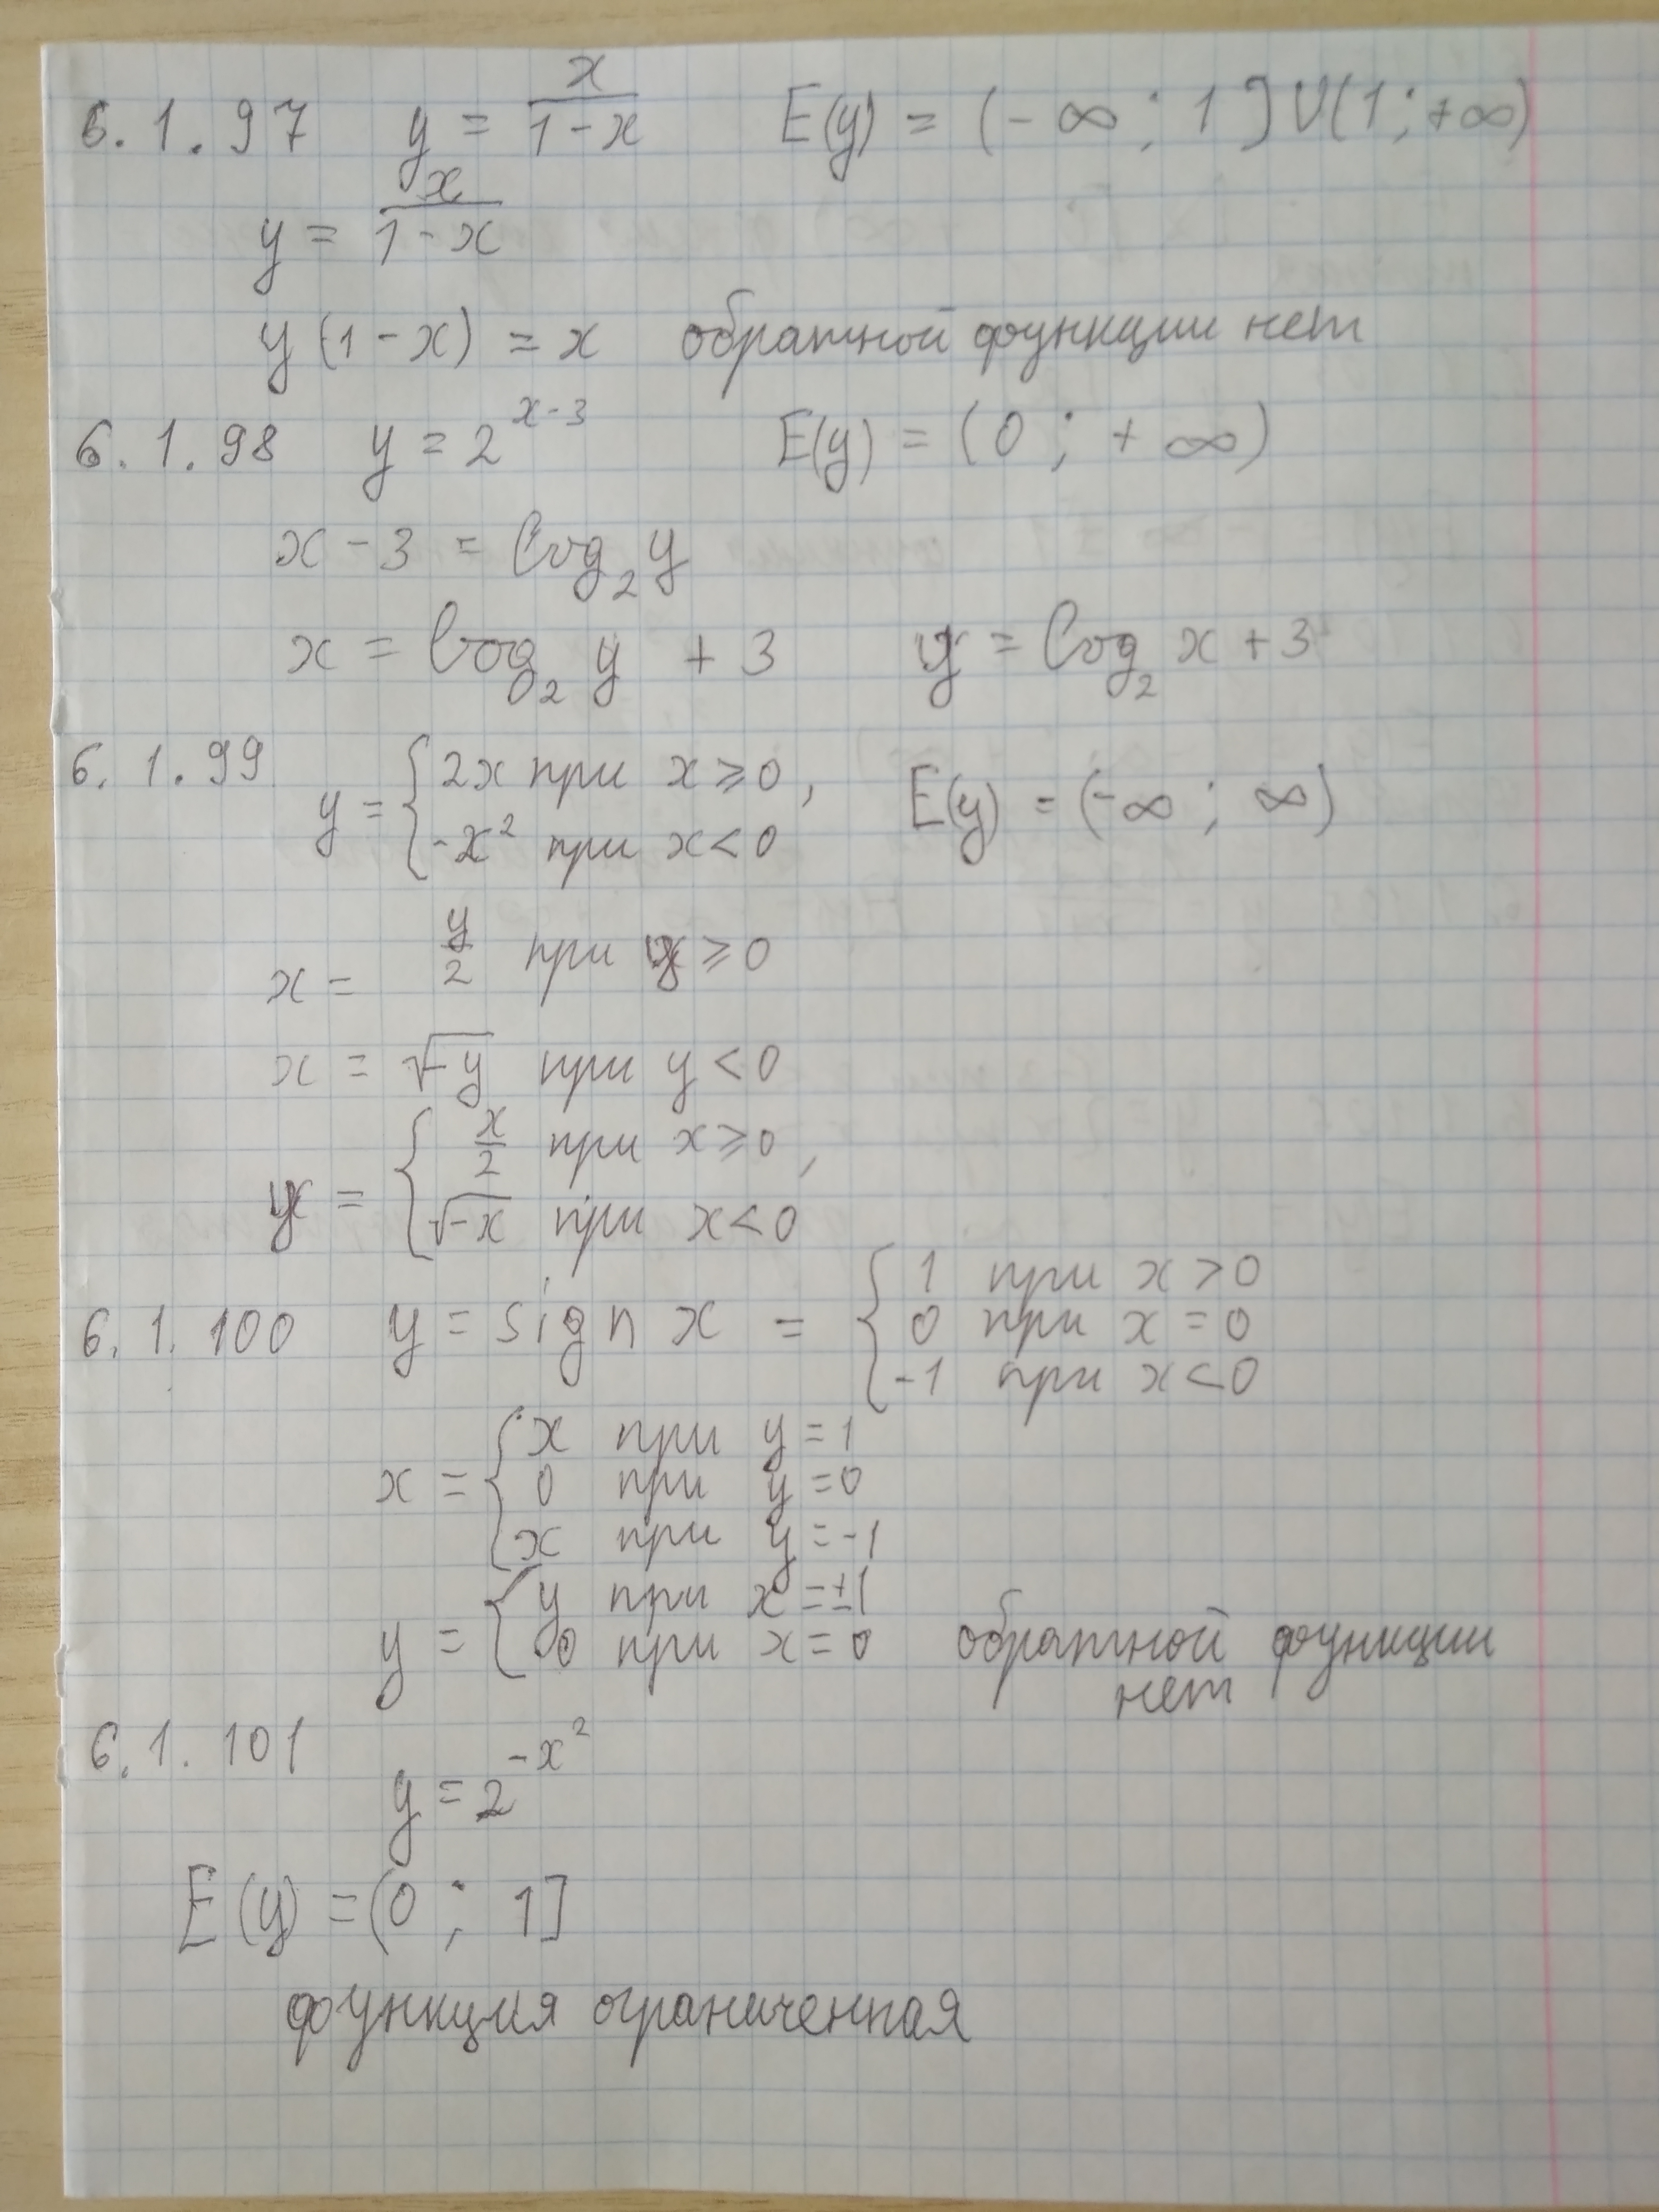 6.1.97 y = x/(1-x) E(y) = (-∞; 1] ∪ (1; +∞)
y = x/(1-x)
y(1-x) = x обратной функции нет
6.1.98 y = 2^(x-3) E(y) = (0; +∞)
x - 3 = log₂ y
x = log₂ y + 3 y = log₂ x + 3
6.1.99 y = { 2x при x ≥ 0, E(y) = (-∞; ∞)
-x² при x < 0
x = y/2 при y ≥ 0
x = √-y при y < 0
y = { x/2 при x ≥ 0,
√-x при x < 0
6.1.100 y = sign x = { 1 при x > 0
0 при x = 0
-1 при x < 0
x = { x при y = 1
0 при y = 0
x при y = -1
y = { y при x = ±1
0 при x = 0 обратной функции
нет
6.1.101 y = 2^(-x²)
E(y) = (0; 1]
функция ограниченная